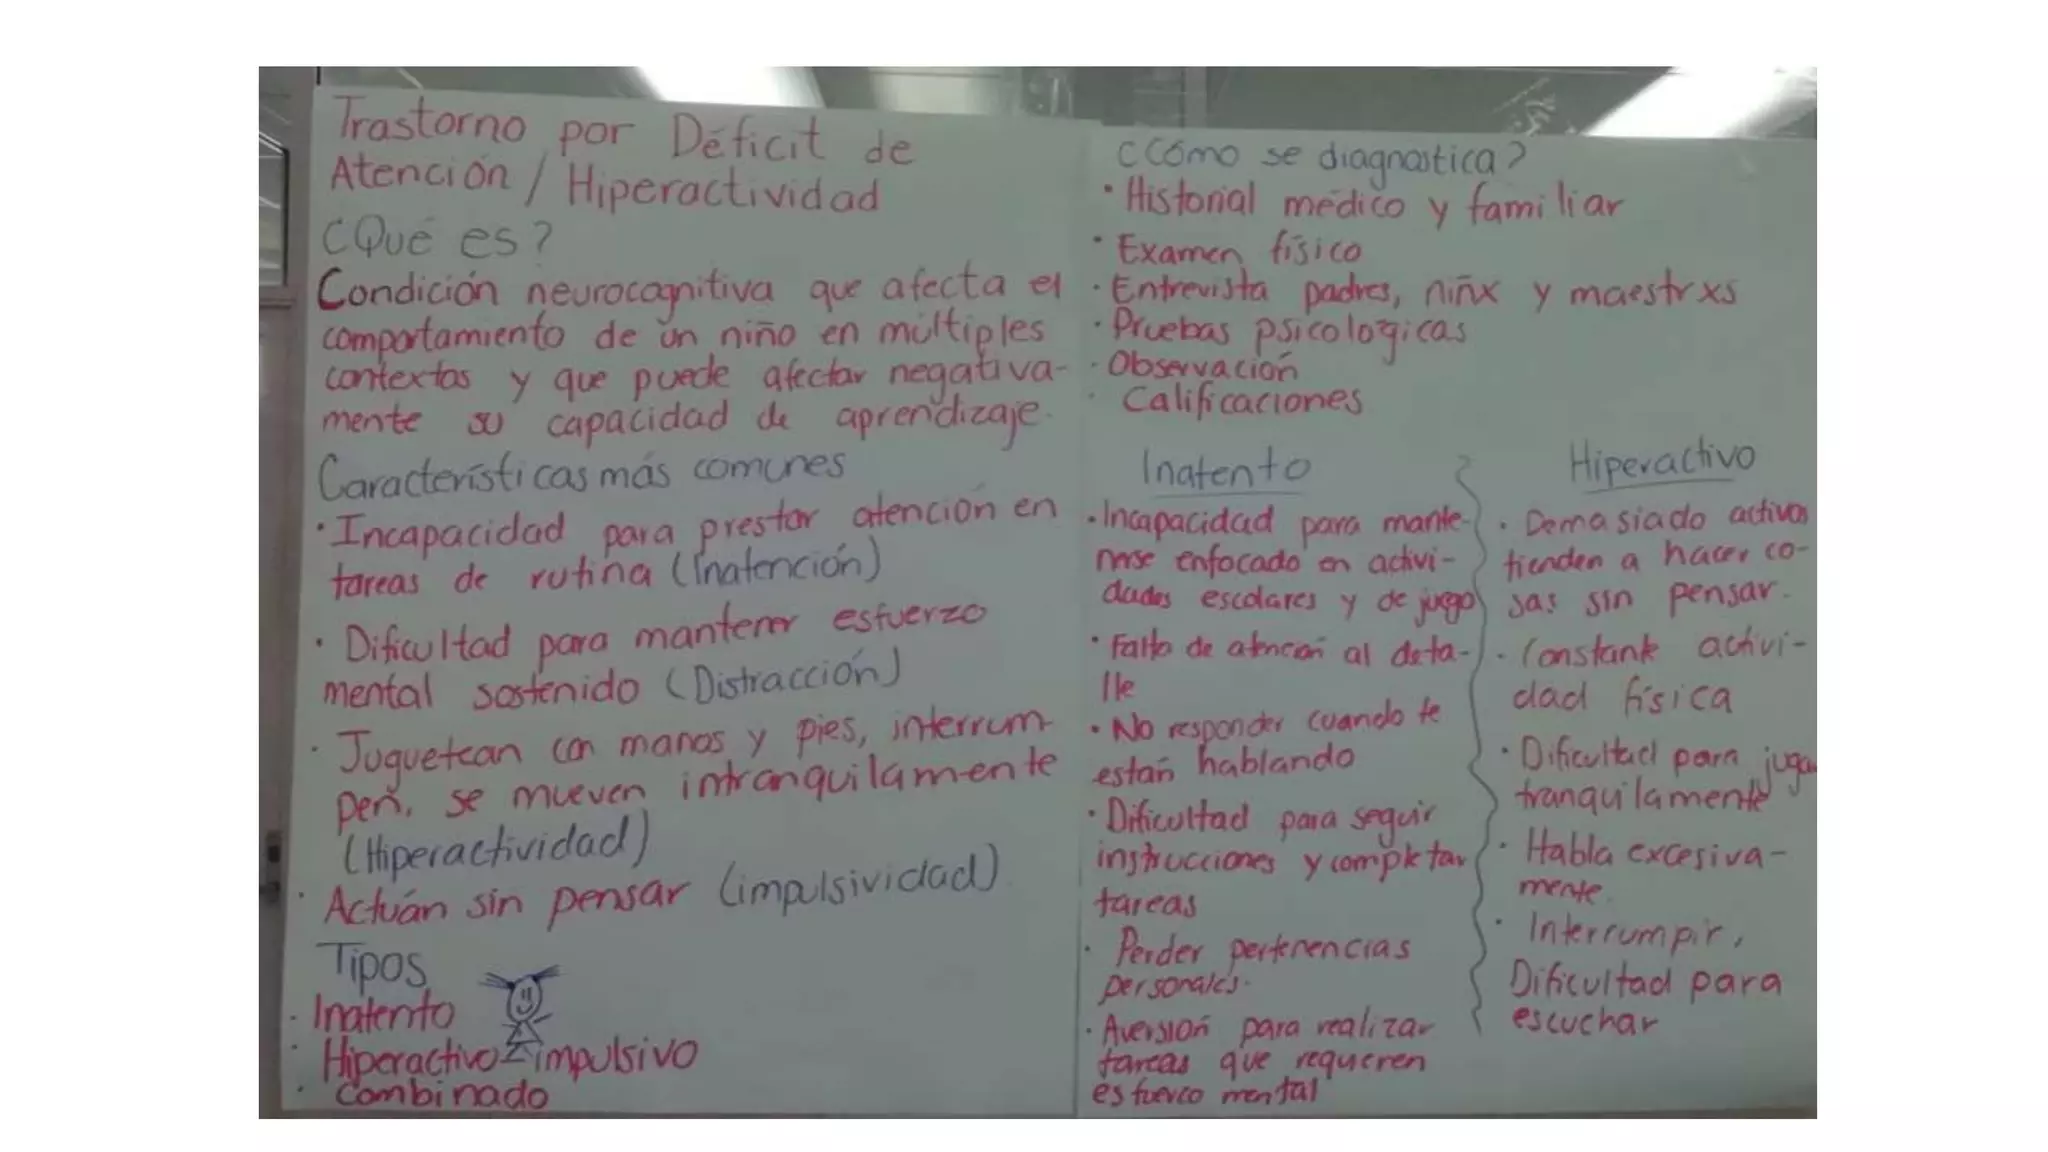 Trastorno por Déficit de
Atención / Hiperactividad
¿Qué es?
Condición neurocognitiva que afecta el
comportamiento de un niño en múltiples
contextos y que puede afectar negativa-
mente su capacidad de aprendizaje.
Características más comunes
· Incapacidad para prestar atención en
tareas de rutina (Inatención)
· Dificultad para mantener esfuerzo
mental sostenido (Distracción)
· Juguetean con manos y pies, interrum-
pen, se mueven intranquilamente
(Hiperactividad)
· Actúan sin pensar (impulsividad)
Tipos
· Inatento
· Hiperactivo-impulsivo
· Combinado
¿Cómo se diagnostica?
· Historial médico y familiar
· Examen físico
· Entrevista padres, niñx y maestrxs
· Pruebas psicológicas
· Observación
· Calificaciones
Inatento
· Incapacidad para mante-
nerse enfocado en activi-
dades escolares y de juego
· Falta de atención al deta-
lle
· No responder cuando te
están hablando
· Dificultad para seguir
instrucciones y completar
tareas
· Perder pertenencias
personales.
· Aversión para realizar
tareas que requieren
esfuerco mental
Hiperactivo
· Demasiado activos
tienden a hacer co-
sas sin pensar.
· Constante activi-
dad física
· Dificultad para jugar
tranquilamente
· Habla excesiva-
mente.
· Interrumpir,
Dificultad para
escuchar